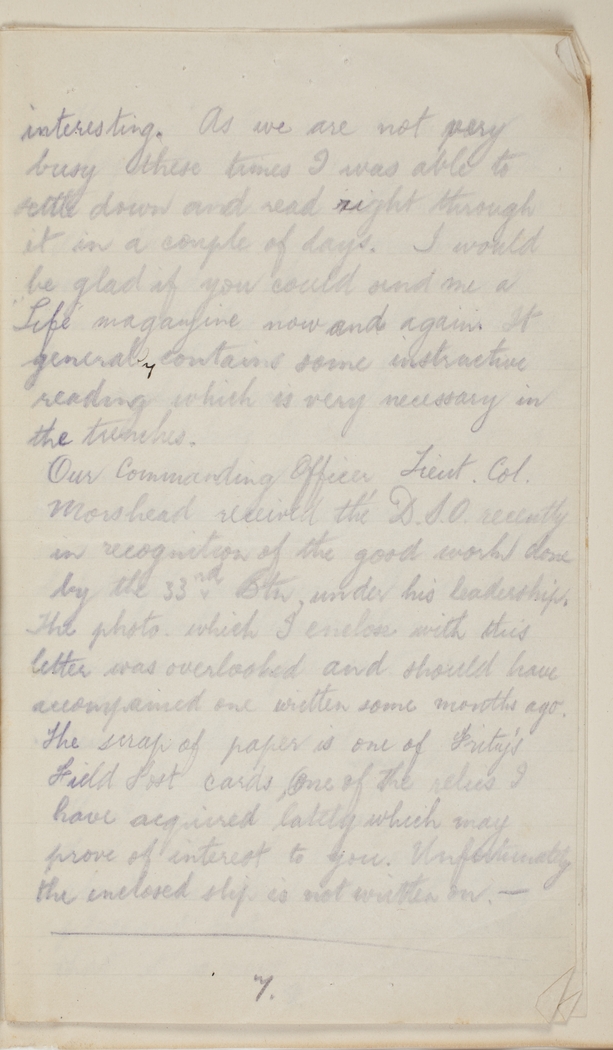 interesting. As we are not very
busy these times I was able to
settle down and read right through
it in a couple of days. I would
be glad if you could send me a
"Life" magazine now and again. It
generally contains some instructive
reading which is very necessary in
the trenches.
Our Commanding Officer Lieut. Col.
Morshead received the D.S.O. recently
in recognition of the good work done
by the 33rd Btn, under his leadership.
The photo. which I enclose with this
letter was overlooked and should have
accompanied one written some months ago.
The scrap of paper is one of Fritz's
Field Post cards, one of the relics I
have acquired lately which may
prove of interest to you. Unfortunately
the enclosed slip is not written on. —
7.